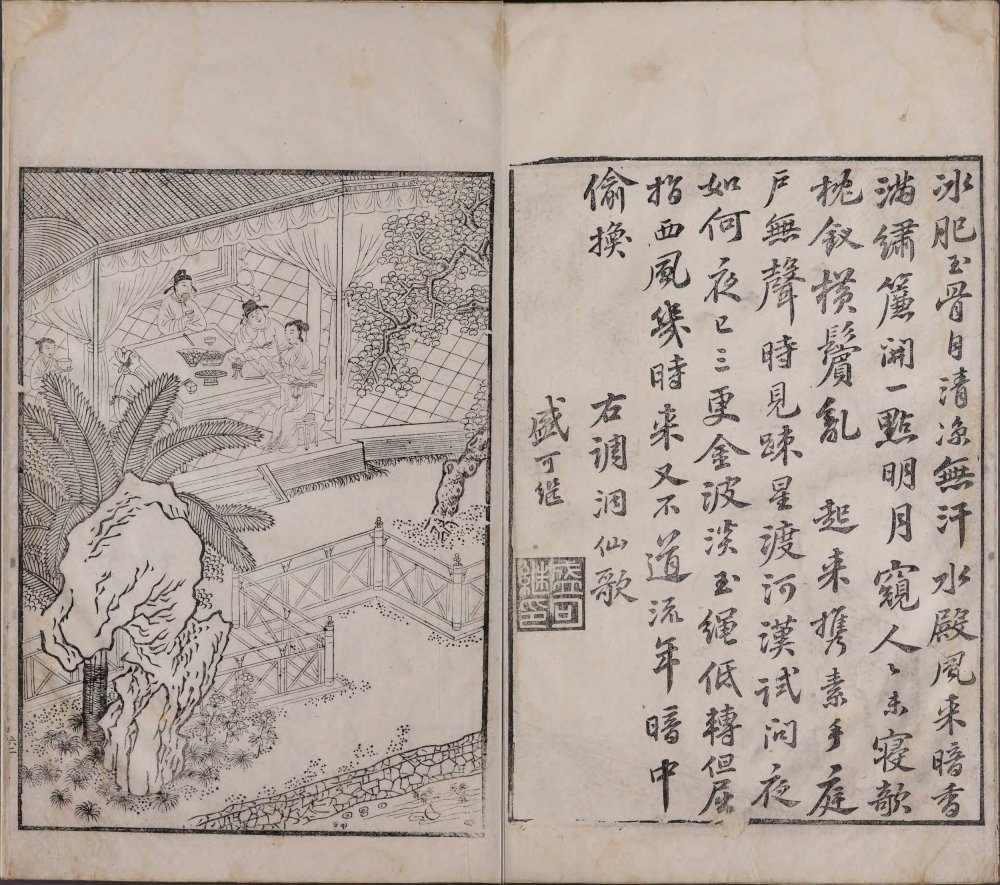 冰肌玉骨自清凉無汗　水殿風来暗香
滿繡簾開一點明月窺人〻未寢欹
枕釵横鬢亂　起来携素手庭
戶無聲時見踈星渡河漢試問夜
如何夜已三更金波淡玉繩低轉但屈
指西風幾時来又不道流年暗中
偷換
右調洞仙歌
盛可继
盛可
継印